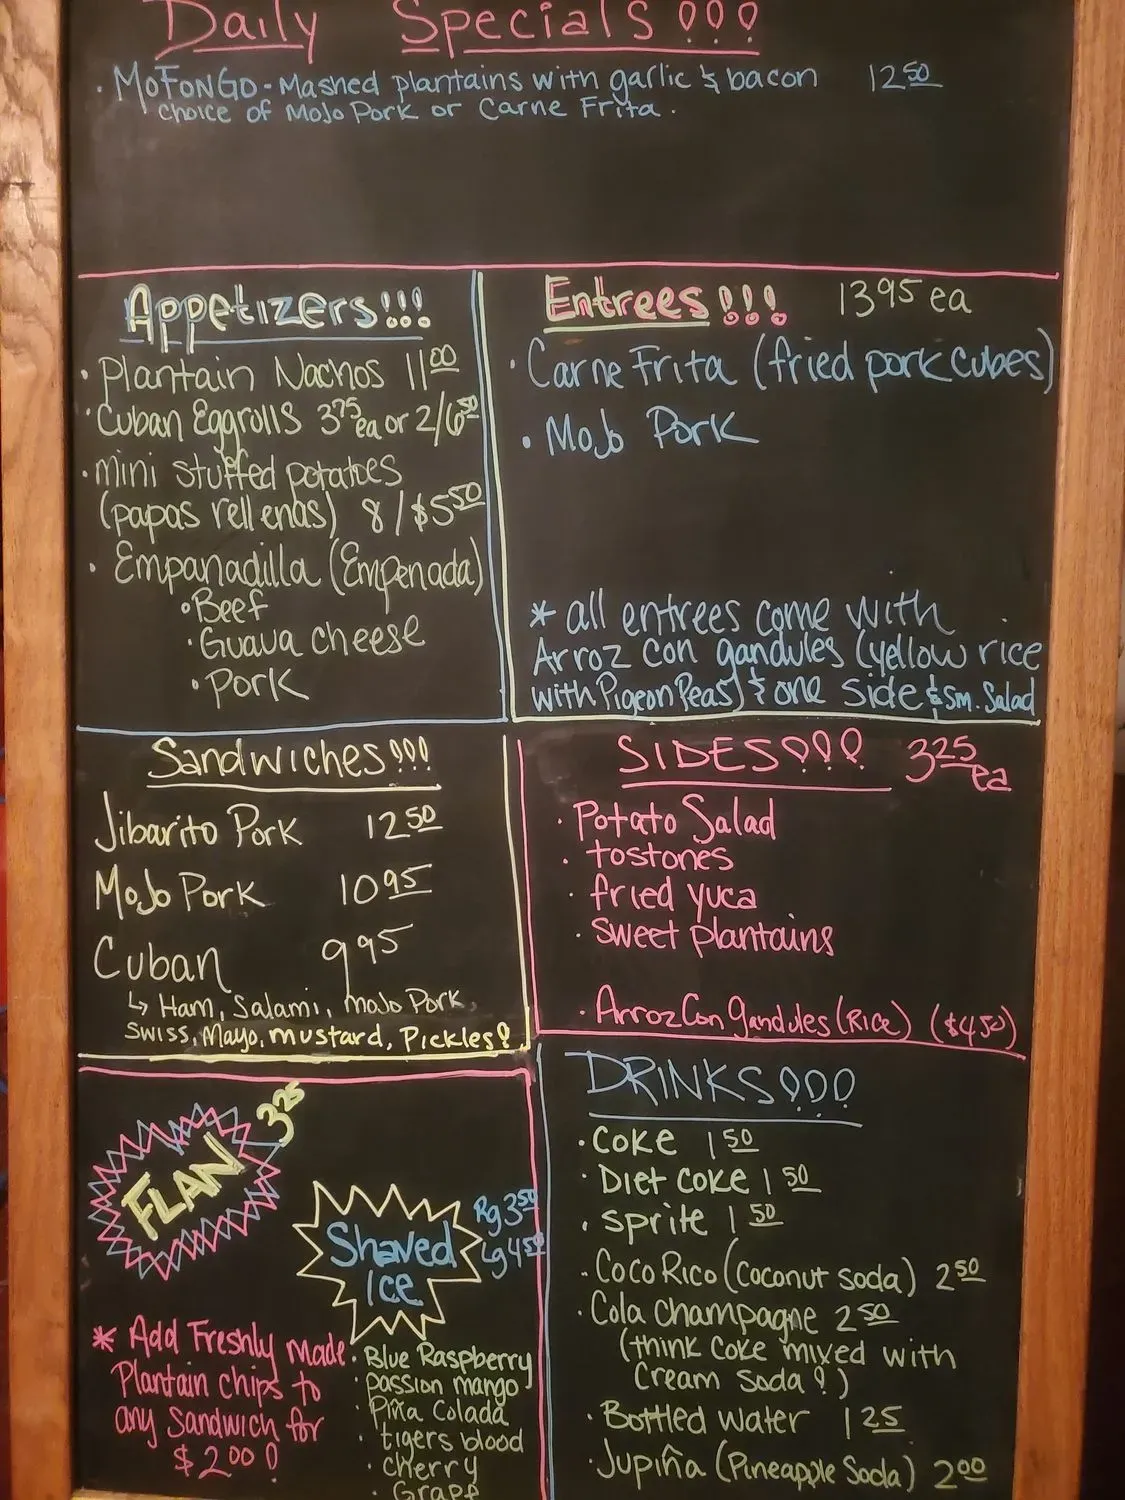 Daily Specials!!!
· MoFonGo - Mashed plantains with garlic & bacon 12 50
choice of Mojo Pork or Carne Frita.
Appetizers!!!
· Plantain Nachos 11 00
· Cuban Eggrolls 3 75 ea or 2/6 50
· mini stuffed potatoes
(papas rellenas) 8/$5 50
· Empanadilla (Empenada)
· Beef
· Guava cheese
· Pork
Entrees!!! 13 95 ea
· Carne Frita (fried pork cubes)
· Mojo Pork
* all entrees come with
Arroz con gandules (yellow rice
with Pigeon Peas) & one side & sm. Salad
Sandwiches!!!
Jibarito Pork 12 50
Mojo Pork 10 95
Cuban 9 95
↳ Ham, Salami, mojo Pork,
Swiss, Mayo, mustard, Pickles!
SIDES!!! 3 25 ea
· Potato Salad
· tostones
· fried yuca
· sweet plantains
· Arroz Con gandules (Rice) ($4 50)
FLAN 3 25
Shaved
Ice
Rg 3 50
Lg 4 50
* Add Freshly made
Plantain chips to
any Sandwich for
$2 00!
· Blue Raspberry
· passion mango
· Piña Colada
· tigers blood
· cherry
· Grape
DRINKS!!!
· Coke 1 50
· Diet Coke 1 50
· sprite 1 50
· Coco Rico (Coconut soda) 2 50
· Cola champagne 2 50
(think Coke mixed with
Cream soda!)
· Bottled water 1 25
· Jupiña (Pineapple Soda) 2 00